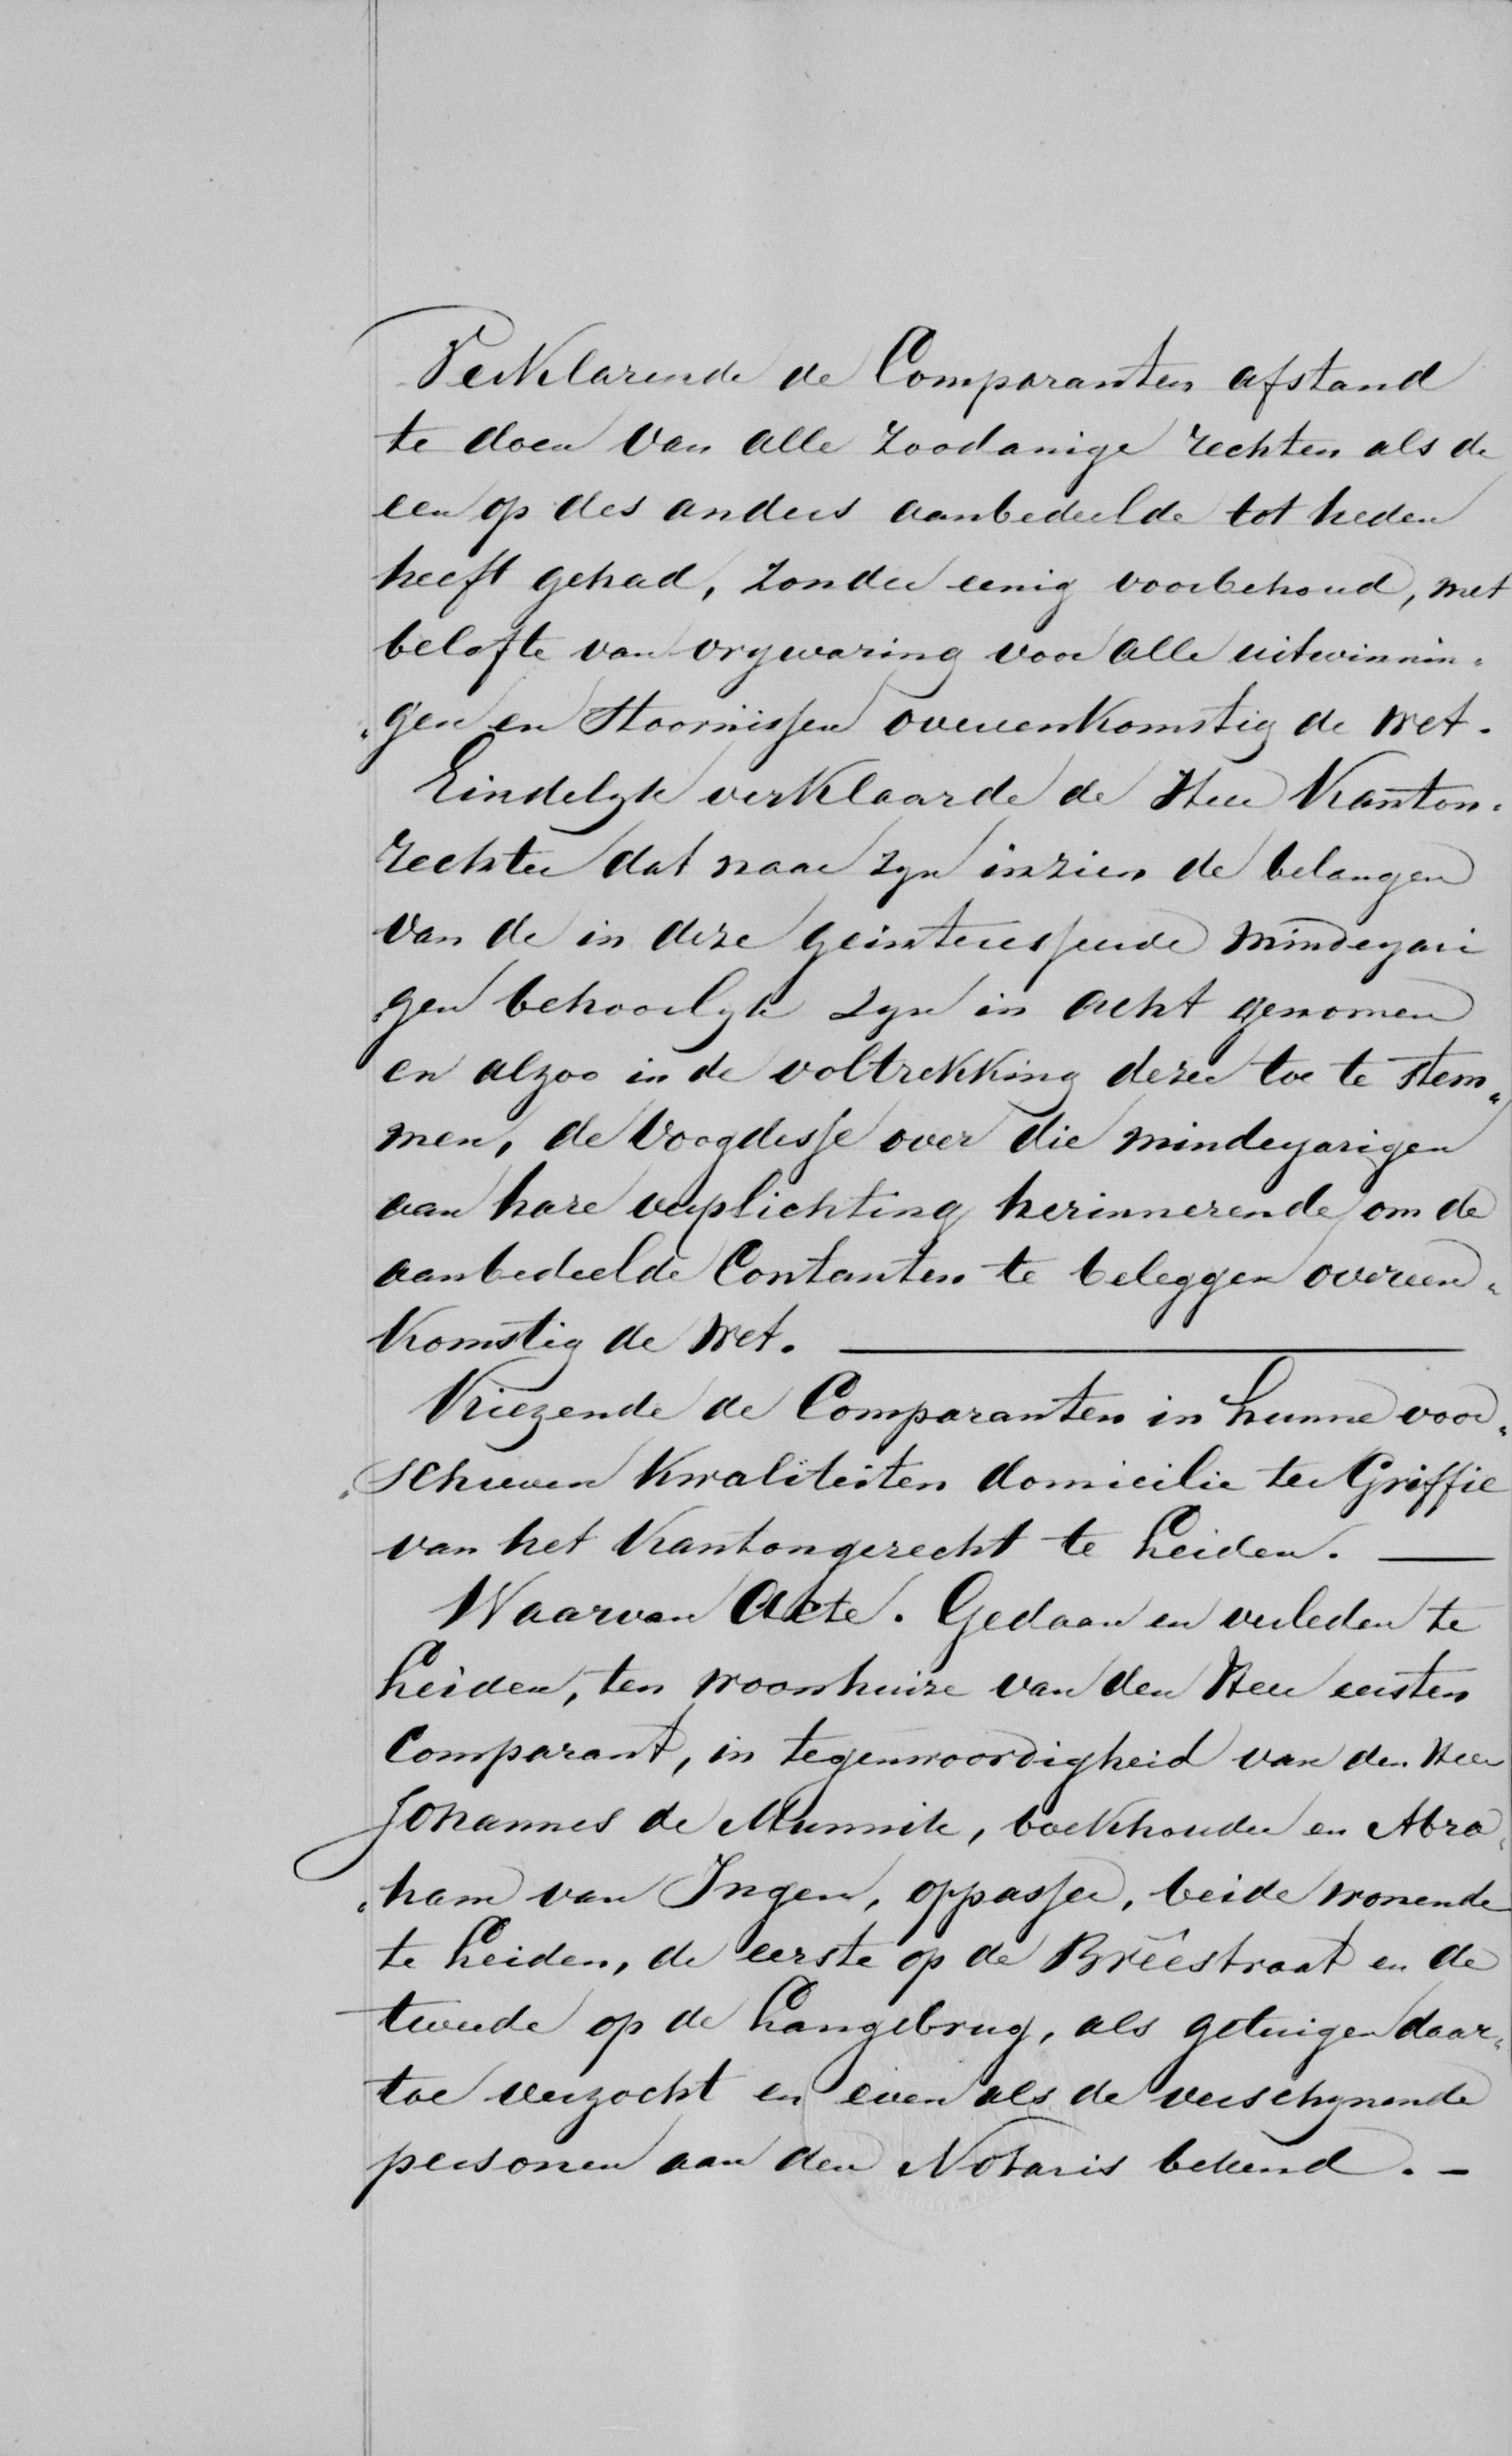 Verklarende de Comparanten afstand
te doen van alle zoodanige rechten als de
een op des anders aanbedeelde tot heden
heeft gehad, zonder eenig voorbehoud, met
belofte van vrywaring voor alle uitwinnin„
„gen en Stoornissen overeenkomstig de wet.
Eindelyk verklaarde de Heer Kanton„
rechter dat naar zyn inzien de belangen
van de in deze geinteresseerde minderjari
„gen behoorlyk zyn in acht genomen
en alzoo in de voltrekking dezer toe te stem„
men, de Voogdesse over die minderjarigen
aan hare verplichting herinnerende om de
aanbedeelde Contanten te beleggen overeen„
komstig de wet. ———
Kiezende de Comparanten in hunne voor„
„schreven kwaliteiten domicilie ter Griffie
van het Kantongerecht te Leiden. —
Waarvan Acte. Gedaan en verleden te
Leiden, ten woonhuize van den Heer eersten
Comparant, in tegenwoordigheid van den Heer
Johannes de Munnik, boekhouder en Abra„
„ham van Ingen, oppasser, beide wonende
te Leiden, de eerste op de Brêestraat en de
tweede op de Langebrug, als getuigen daar„
toe verzocht en even als de verschynende
personen aan den Notaris bekend. –